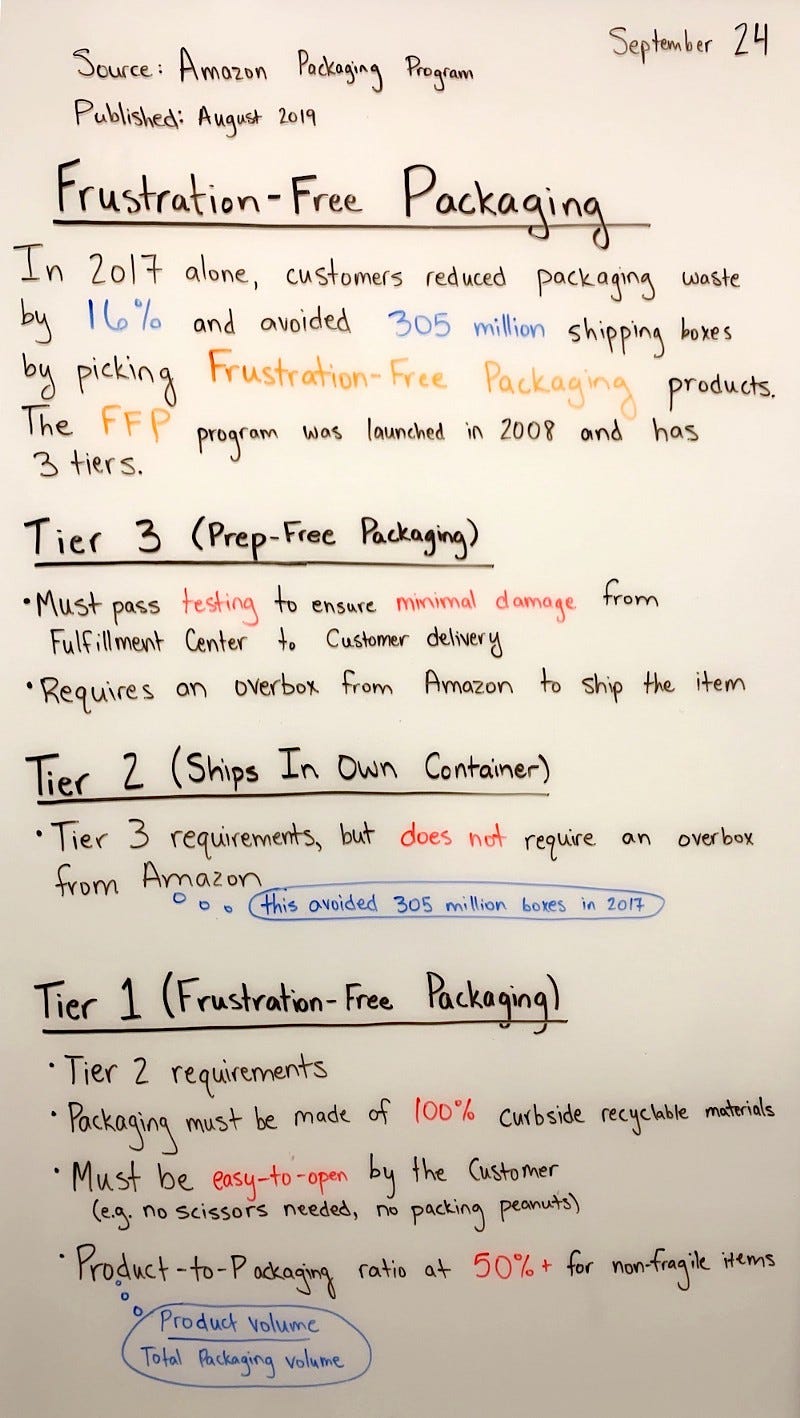 September 24
Source: Amazon Packaging Program
Published: August 2019
Frustration-Free Packaging
In 2017 alone, customers reduced packaging waste
by 16% and avoided 305 million shipping boxes
by picking Frustration-Free Packaging products.
The FFP program was launched in 2008 and has
3 tiers.
Tier 3 (Prep-Free Packaging)
• Must pass testing to ensure minimal damage from
Fulfillment Center to Customer delivery
• Requires an overbox from Amazon to ship the item
Tier 2 (Ships In Own Container)
• Tier 3 requirements, but does not require an overbox
from Amazon
this avoided 305 million boxes in 2017
Tier 1 (Frustration-Free Packaging)
• Tier 2 requirements
• Packaging must be made of 100% curbside recyclable materials
• Must be easy-to-open by the Customer
(e.g. no scissors needed, no packing peanuts)
• Product-to-Packaging ratio at 50%+ for non-fragile items
Product Volume
Total Packaging Volume